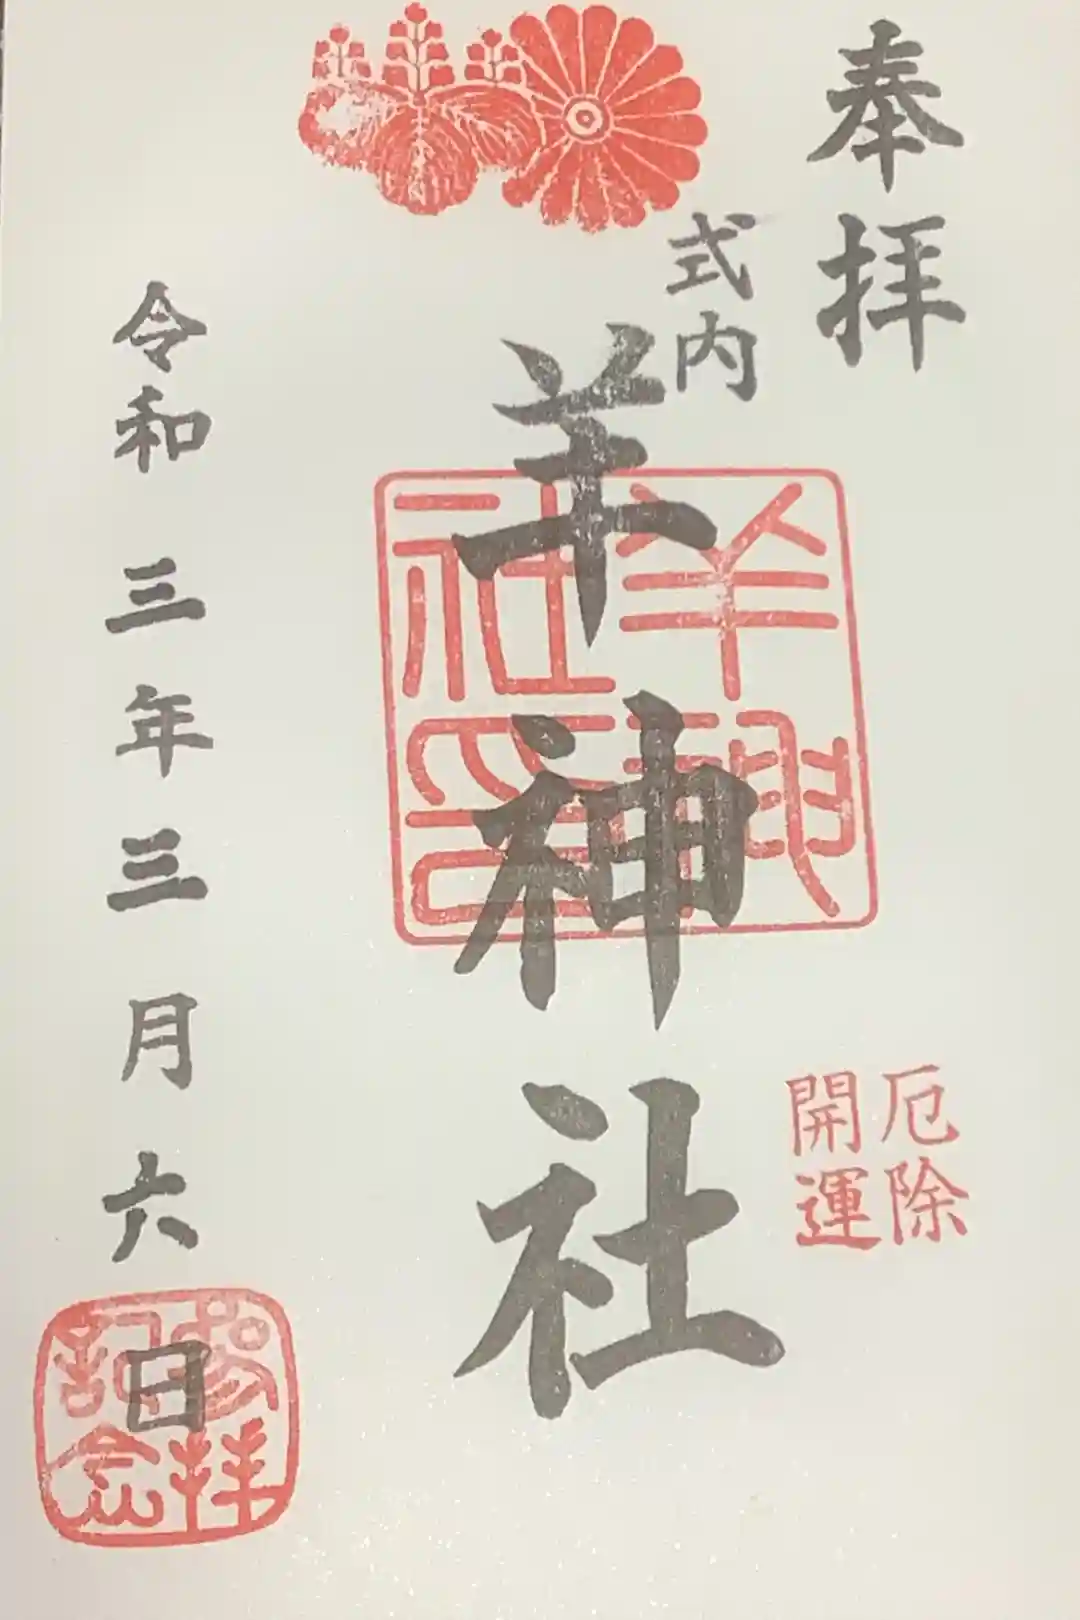 奉拝
式内
羊神社
羊神社印
厄除
開運
令和三年三月六日
参拝記念